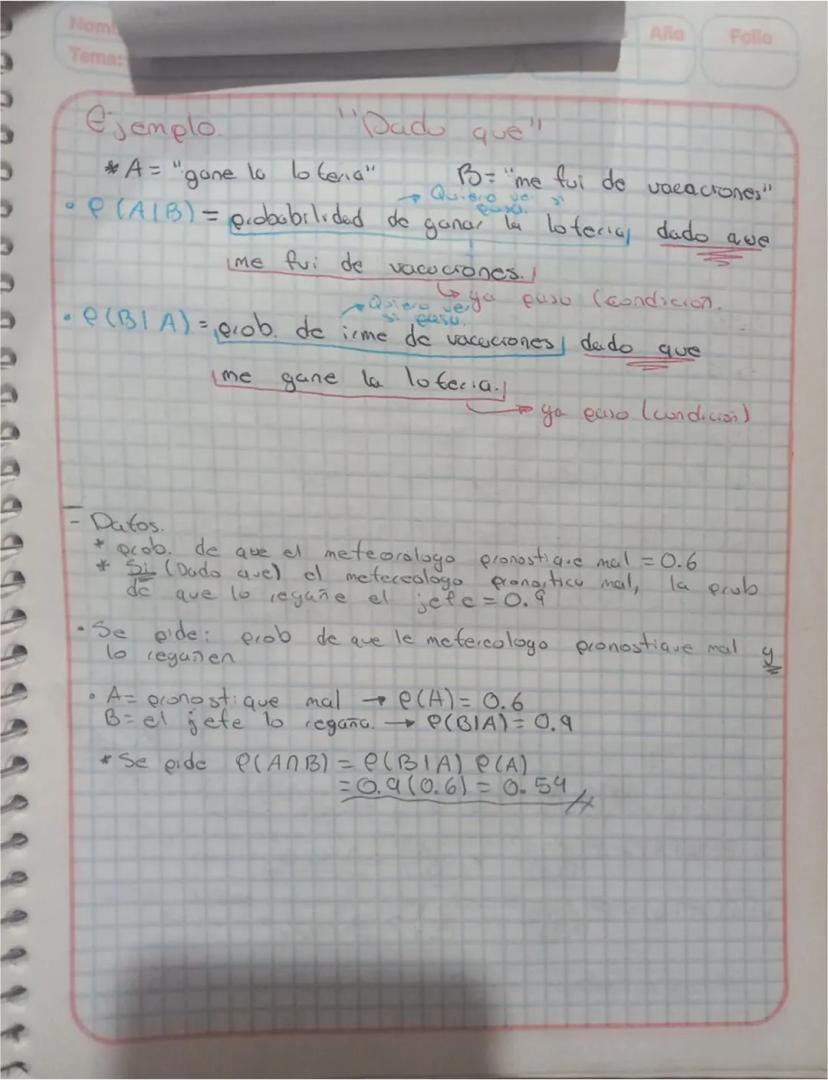 Nom
Tema:
Año
Folio
Ejemplo "Dado que"
* A = "gane la loteria" B = "me fui de vacaciones"
→ Quiero ver si
pasa.
• P(A|B) = probabilidad de ganar la loteria, dado que
me fui de vacaciones.
↳ ya paso (condicion.
→ Quiero ver
si pasa.
• P(B|A) = prob. de irme de vacaciones, dado que
me gane la loteria.
→ ya paso (condicion)
- Datos.
* prob. de que el meteorologo pronostique mal = 0.6
* Si (Dado que) el metereologo pronostico mal, la prob
de que lo regañe el jefe = 0.9
• Se pide: prob de que le metercologo pronostique mal y
lo regañen
• A = pronostique mal → P(A) = 0.6
B = el jefe lo regaña. → P(B|A) = 0.9
* Se pide P(A∩B) = P(B|A) P(A)
= 0.9(0.6) = 0.54